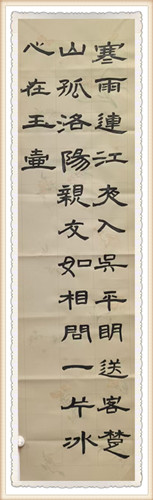 寒雨連江夾入吳平明送客楚
山孤洛陽親友如相問一片冰
心在玉壺